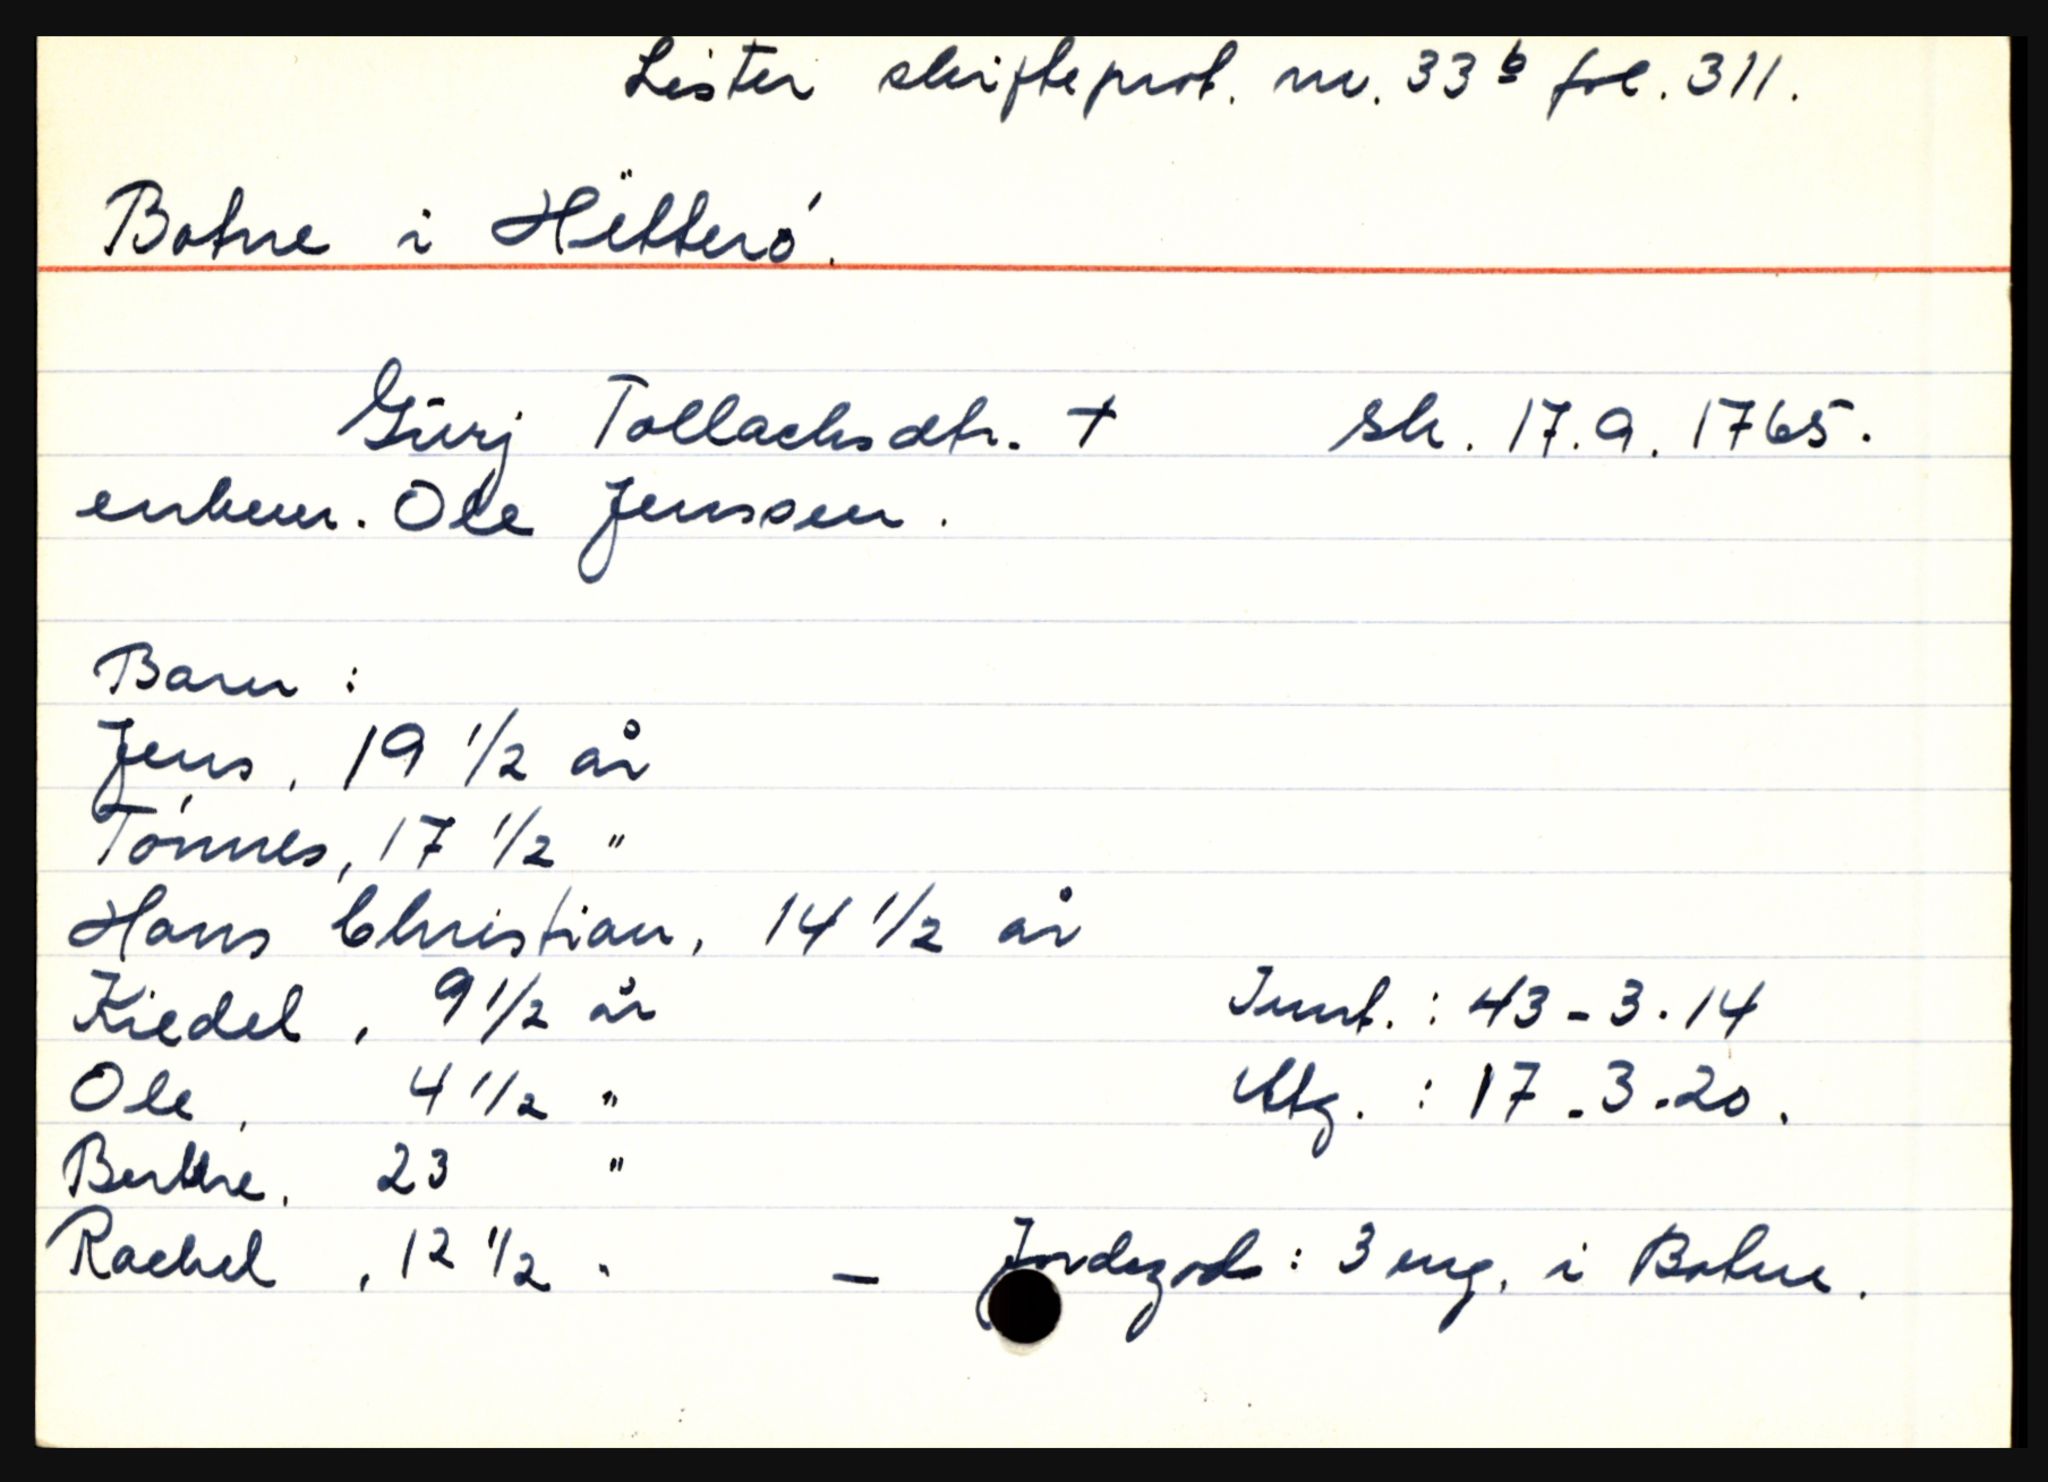 Lister skifteprot. nr. 33 b fol. 311.
Botne i Hitterö.
Gurj Tollachsdtr. † sk. 17.9.1765.
enkem. Ole Jenssen.
Barn :
Jens, 19 1/2 år
Tønnes, 17 1/2 "
Hans Christian, 14 1/2 år
Kiedel, 9 1/2 år Innt. : 43-3-14
Ole, 4 1/2 " Utg. : 17-3-20.
Berthe, 23 "
Rachel, 12 1/2 " — Jordegods : 3 eng. i Botne.